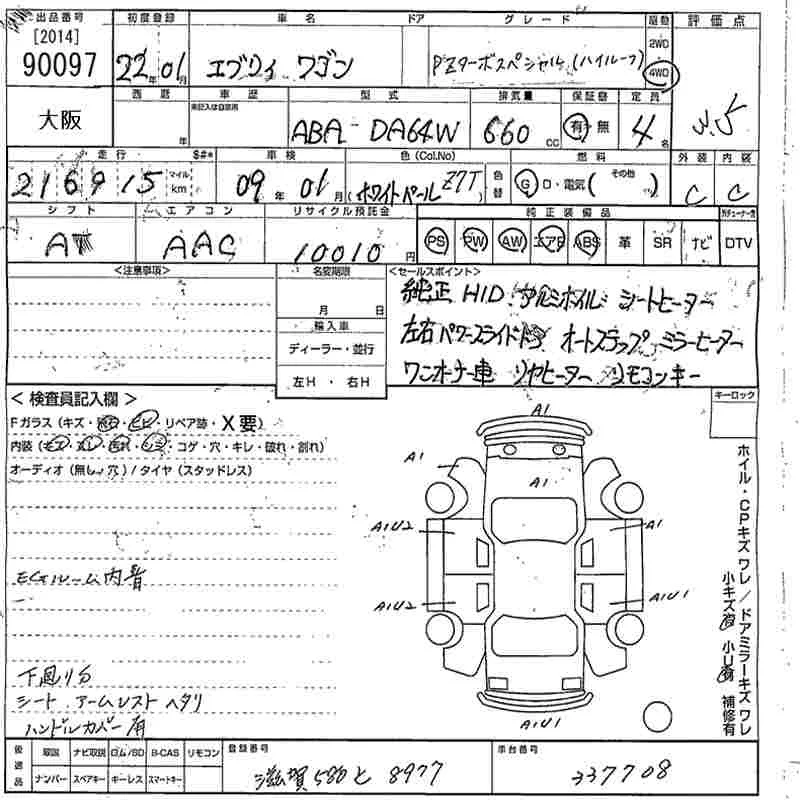 出品番号 初度登録 車名 ドア グレード 駆動 評価点
[2014]
90097 22年01月 エブリィ ワゴン PZターボスペシャル (ハイルーフ) 2WD 4WD
西暦 車歴 型式 排気量 保証書 定員
大阪 年 未記入は自家用 ABA-DA64W 660cc 有・無 4名 3.5
走行 $#* 車検 色(Col.No) 燃料 外装 内装
216915 マイル km 09年01月 (ホワイトパール Z7T) 色替 G・D・電気( その他 ) C C
シフト エアコン リサイクル預託金 純正装備品
AT AAC 10010円 PS PW AW エアB ABS 革 SR ナビ DTV
<注意事項> 名変期限 <セールスポイント>
月 日 純正HID アルミホイル シートヒーター
輸入車 左右パワースライドドア オートステップ ミラーヒーター
ディーラー・並行 ワンオーナー車 リヤヒーター リモコンキー
左H・右H
<検査員記入欄> キーロック
Fガラス(キズ・飛石・ヒビ・リペア跡・X要)
内装(キズ・スレ・汚れ・シミ・コゲ・穴・キレ・破れ・割れ)
オーディオ(無し・穴)/タイヤ(スタッドレス)
A1
A1 A1
A1U2 A1
A1U2 A1U1
A1U1
ホイル・CPキズワレ/ドアミラーキズワレ
小キズ有 小U有 補修有
EGルーム内音
下廻りサ
シート アームレスト ヘタリ
ハンドルカバー有
後送品 取説 ナビ取説 ロム/SD B-CAS リモコン 登録番号 車台番号
ナンバー スペアキー キーレス スマートキー 滋賀580と8977 337708